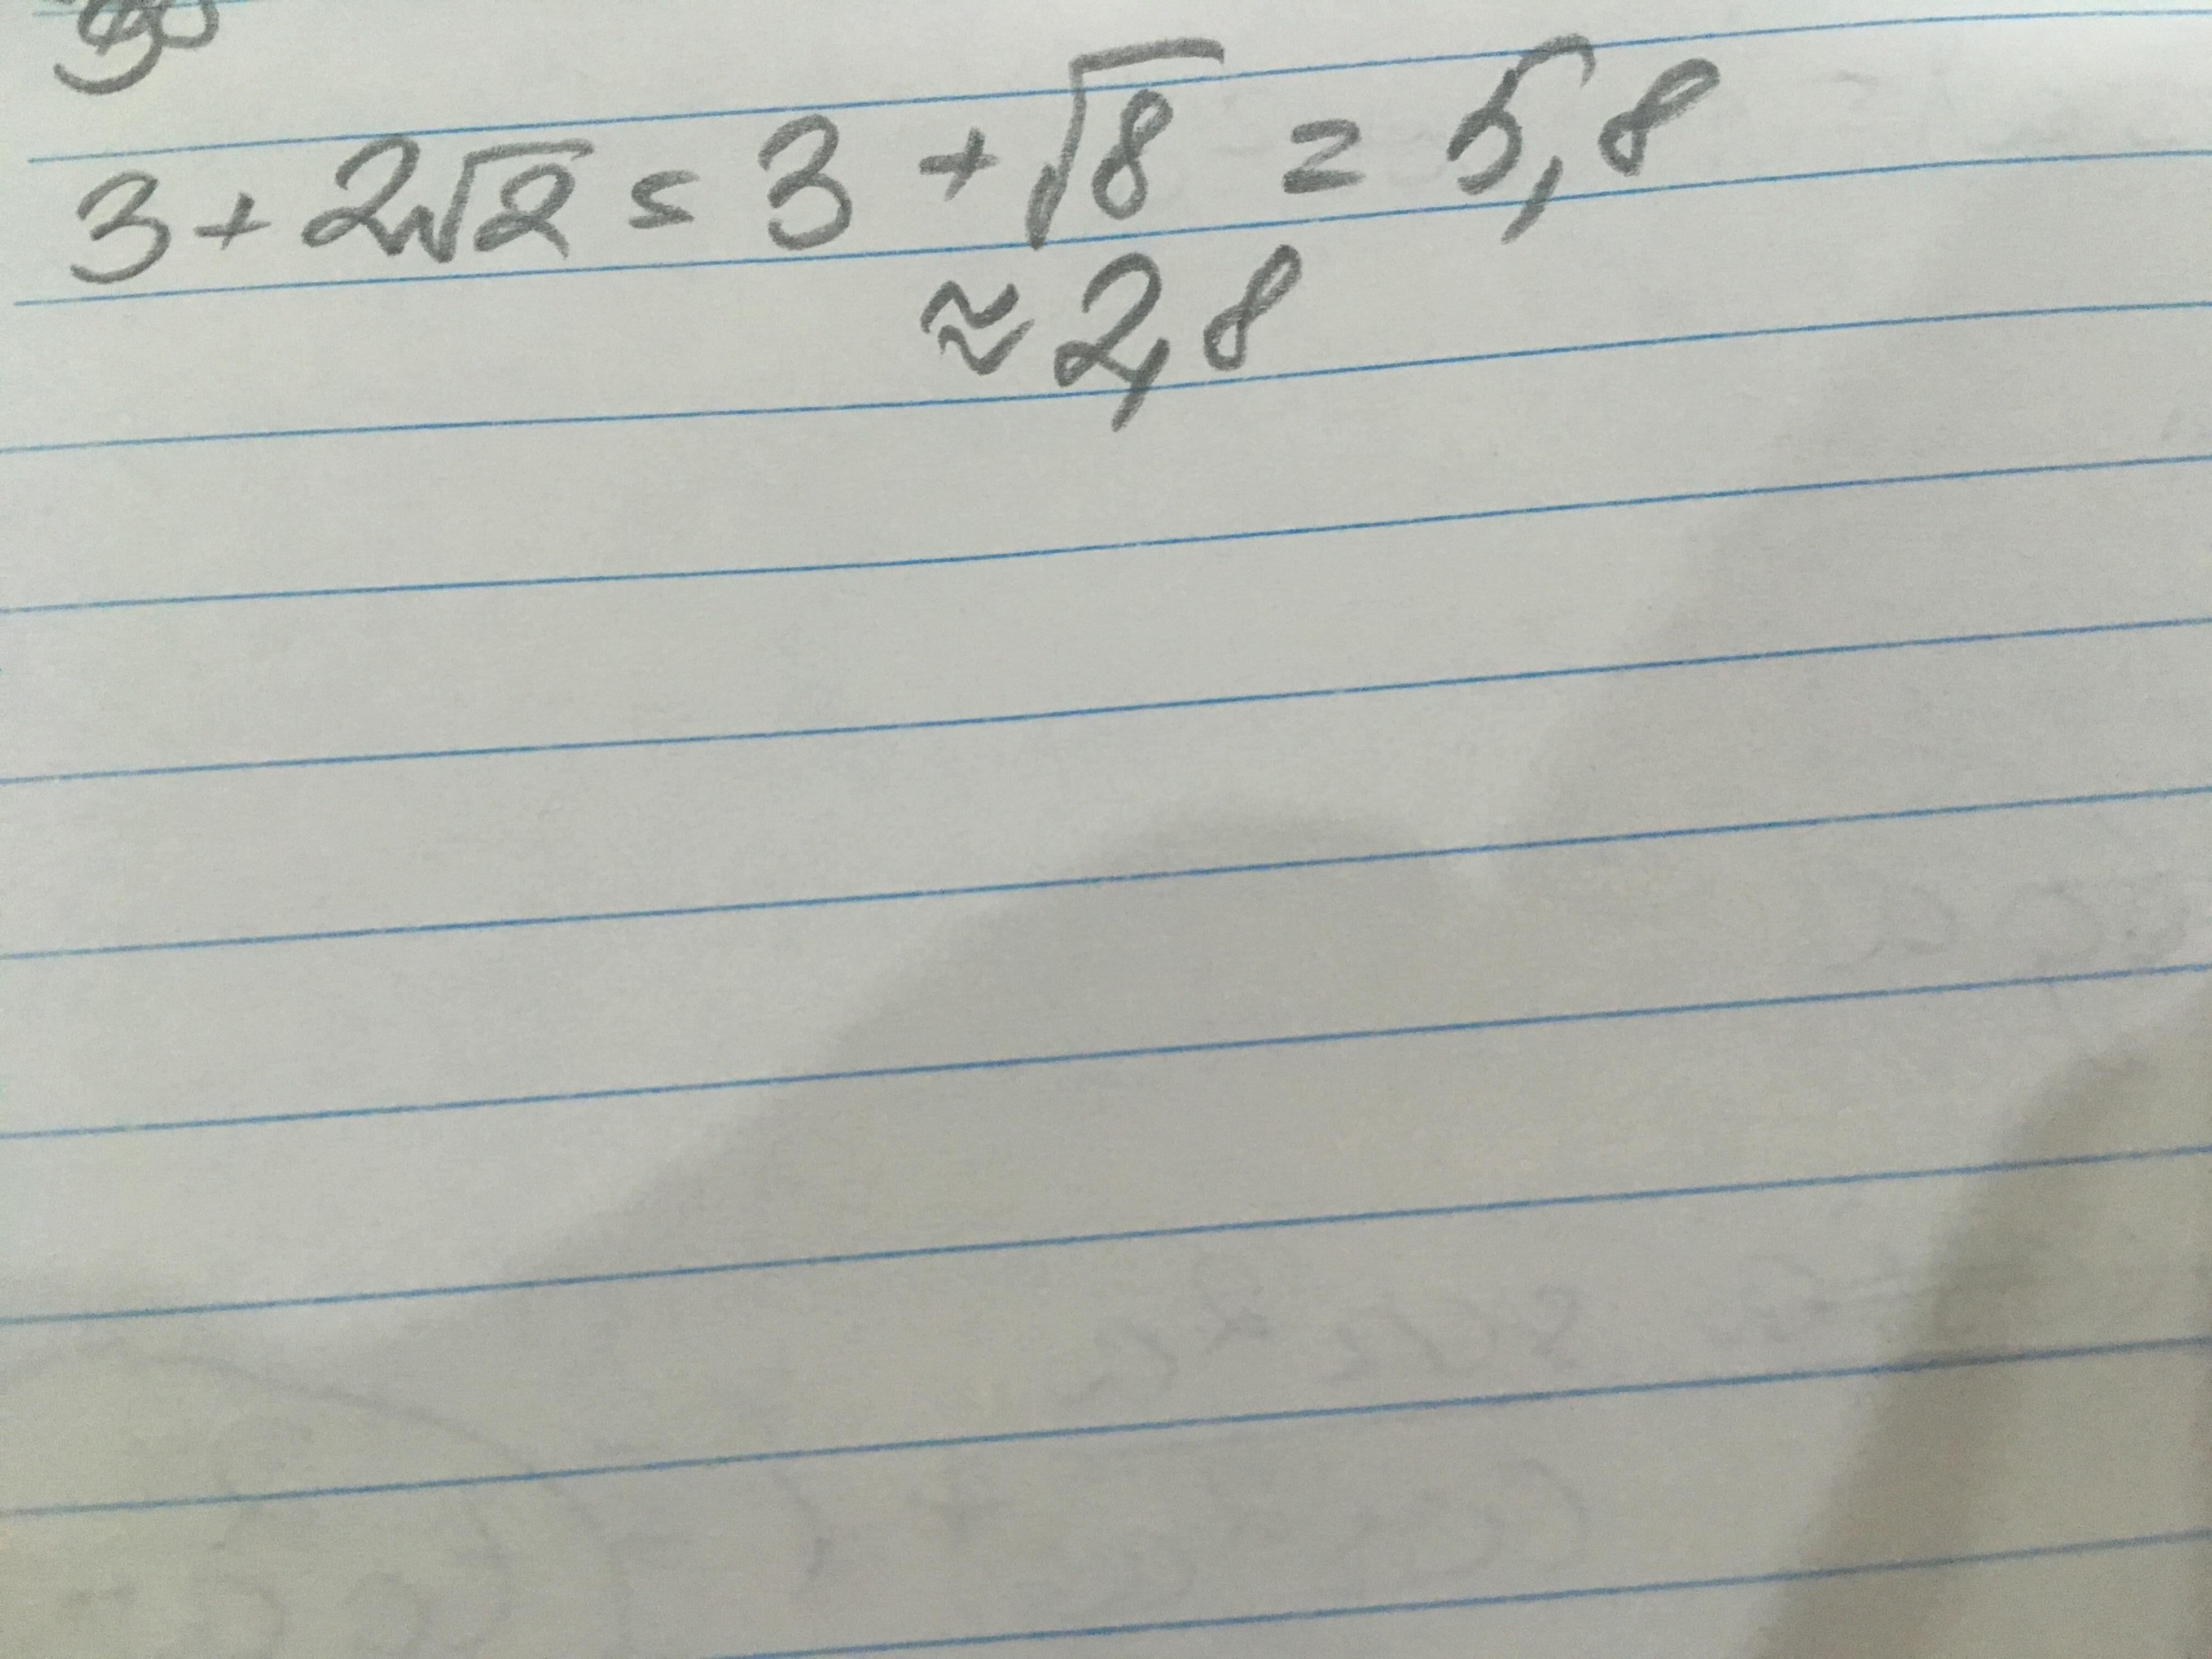 3 + 2√2 = 3 + √8 = 5,8
≈ 2,8